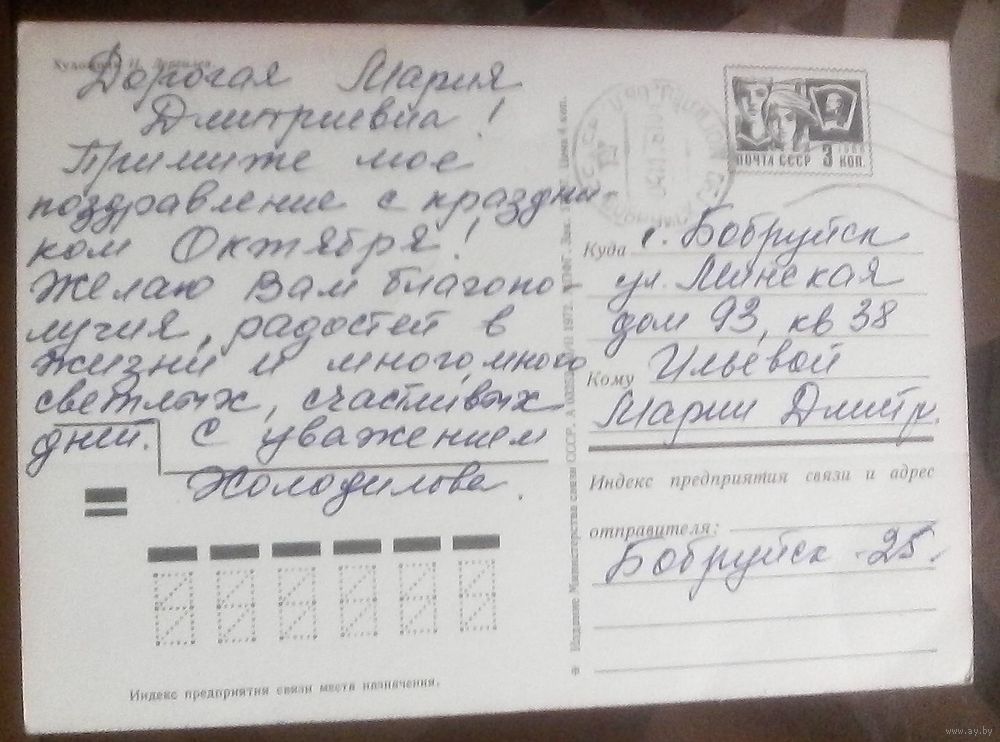 Дорогая Мария
Дмитриевна!
Примите мое
поздравление с праздни-
ком Октября!
Желаю Вам благопо-
лучия, радостей в
жизни и много, много
светлых, счастливых
дней. С уважением
Холодилова.
ПОЧТА СССР 3 КОП.
1966
Куда г. Бобруйск
ул. Минская
дом 93, кв 38
Кому Ильевой
Марии Дмитр.
Индекс предприятия связи и адрес
отправителя:
Бобруйск -25.
Индекс предприятия связи места назначения.
Издание Министерства связи СССР. 1972. Цена 4 коп.
www.ay.by